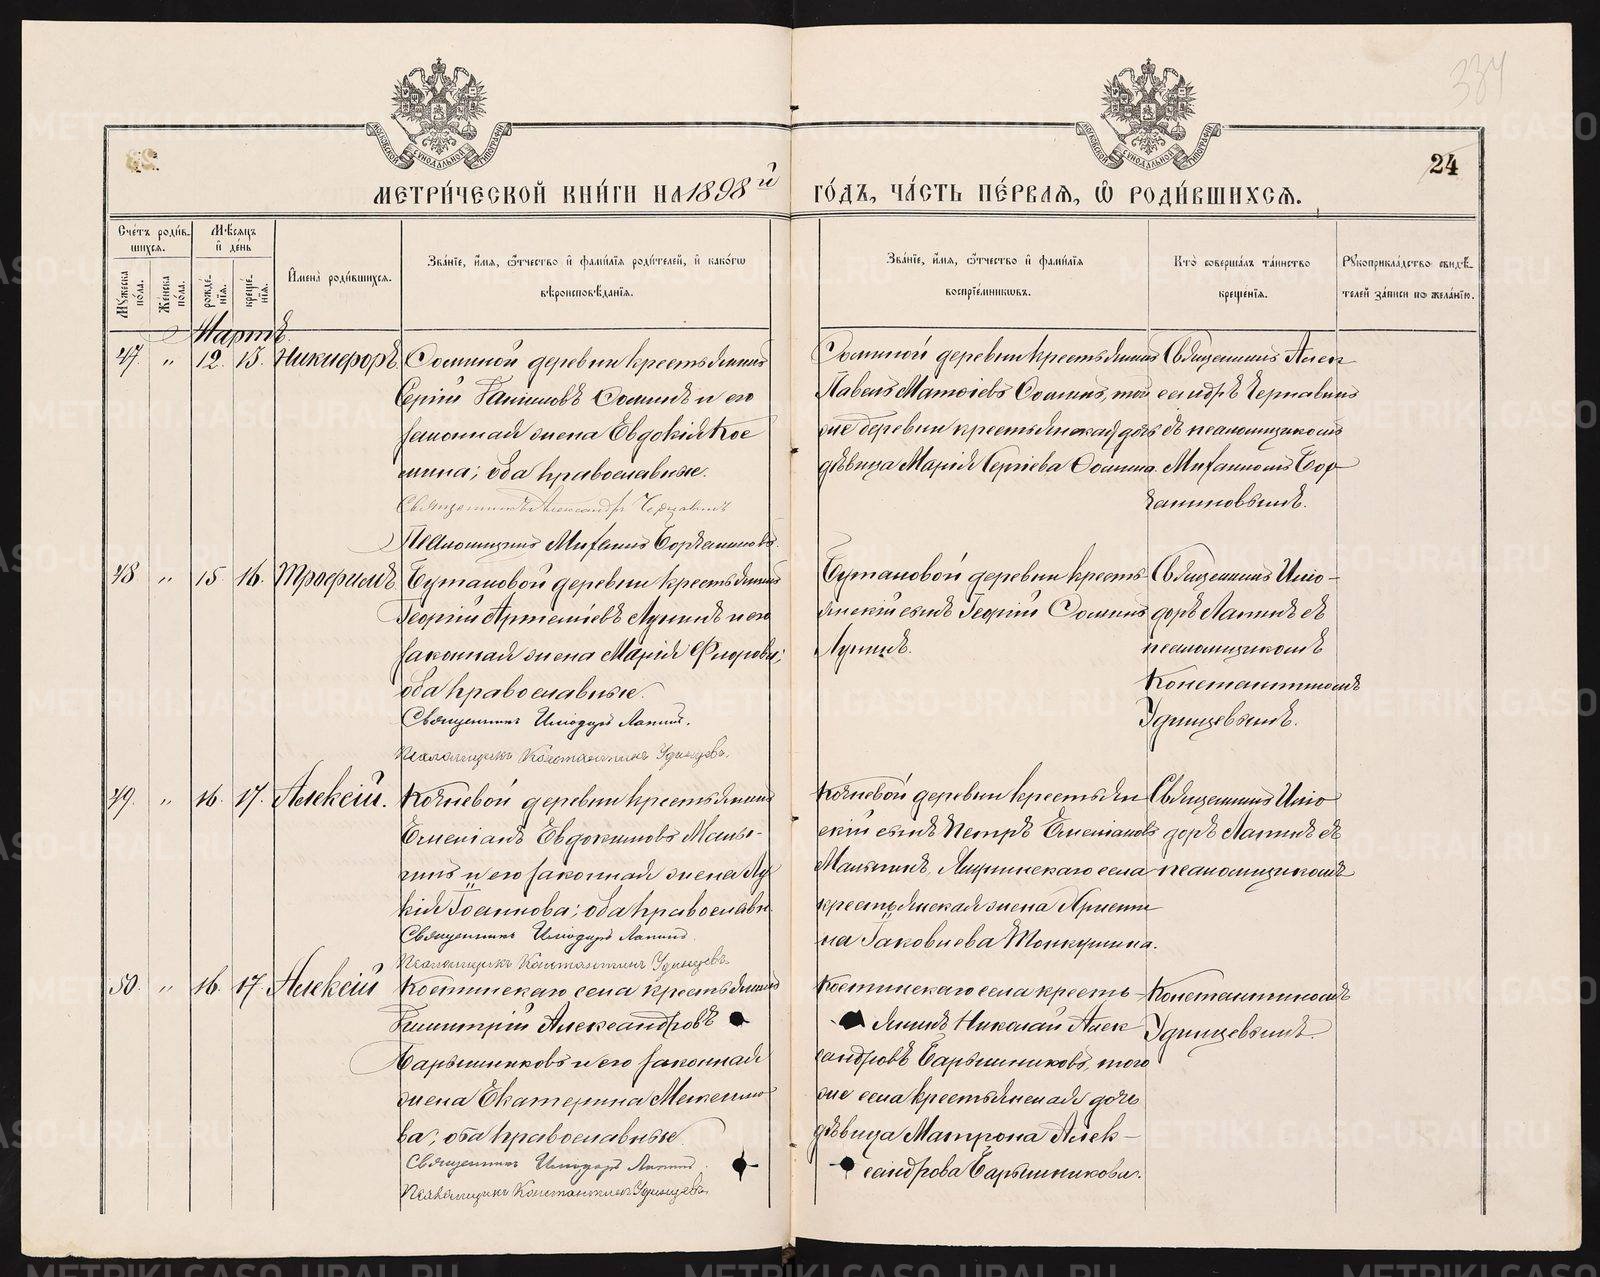 334
24
МЕТРИ́ЧЕСКОЙ КНИ́ГИ НА 1898й ГО́ДЪ, ЧА́СТЬ ПЕ́РВАЯ, Ѡ҆ РОДИ́ВШИХСЯ.
Сче́тъ роди́в-
шихся.
Мѣ́сяцъ
и҆ де́нь
Му́жеска
по́ла.
Же́нска
по́ла.
рожде́-
нїя.
креще́-
нїя.
И҆мена̀ роди́вшихся.
Зва́нїе, и҆́мя, ѻ҆́тчество и҆ фами́лїя роди́телей, и҆ како́гѡ
вѣроисповѣ́данїя.
Зва́нїе, и҆́мя, ѻ҆́тчество и҆ фами́лїя
воспрїе́мникѡвъ.
Кто̀ соверша́лъ та́инство
креще́нїя.
Рꙋкоприкла́дство свидѣ́-
телей за́писи по жела́нїю.
Мартъ
47. " 12. 15. Никифоръ.
Соминой деревни крестьянинъ
Сергій Соминъ и его
законная жена Евдокія
оба православные.
Священникъ Александръ Чернавинъ
Псаломщикъ Михаилъ
Соминой деревни крестьянинъ
Павелъ Соминъ, той
же деревни крестьянская дочь
дѣвица Марія Сергіева Сомина.
Священникъ Алек
сандръ Чернавинъ
съ псаломщикомъ
Михаиломъ
48 " 15 16. Трофимъ.
деревни крестьянинъ
Георгій Артемьевъ Лунинъ и его
законная жена Марія Фролова;
оба православные.
Священникъ Исидоръ Лапинъ.
Псаломщикъ Константинъ Удинцевъ.
деревни кресть-
янскій сынъ Георгій
Лунинъ.
Священникъ Иси-
доръ Лапинъ съ
псаломщикомъ
Константиномъ
Удинцевымъ.
49. " 16. 17. Алексій.
Кочневой деревни крестьянинъ
Емеліанъ Евдокимовъ Малы-
гинъ и его законная жена Лу
кія Іоаннова; оба православн.
Священникъ Исидоръ Лапинъ
Псаломщикъ Константинъ Удинцевъ.
Кочневой деревни крестьян
скій сынъ Петръ Емеліановъ
Малыгинъ, села
крестьянская жена
на Іаковлева
Священникъ Иси
доръ Лапинъ съ
псаломщикомъ
50. " 16. 17. Алексій
Костинскаго села крестьянинъ
Димитрій Александровъ
Барышниковъ и его законная
жена Екатерина
ва; оба православные.
Священникъ Исидоръ Лапинъ.
Псаломщикъ Константинъ Удинцевъ.
Костинскаго села кресть-
янинъ Николай Алек
сандровъ Барышниковъ, того
же села крестьянская дочь
дѣвица Матрона Алек-
сандрова Барышникова.
Константиномъ
Удинцевымъ.